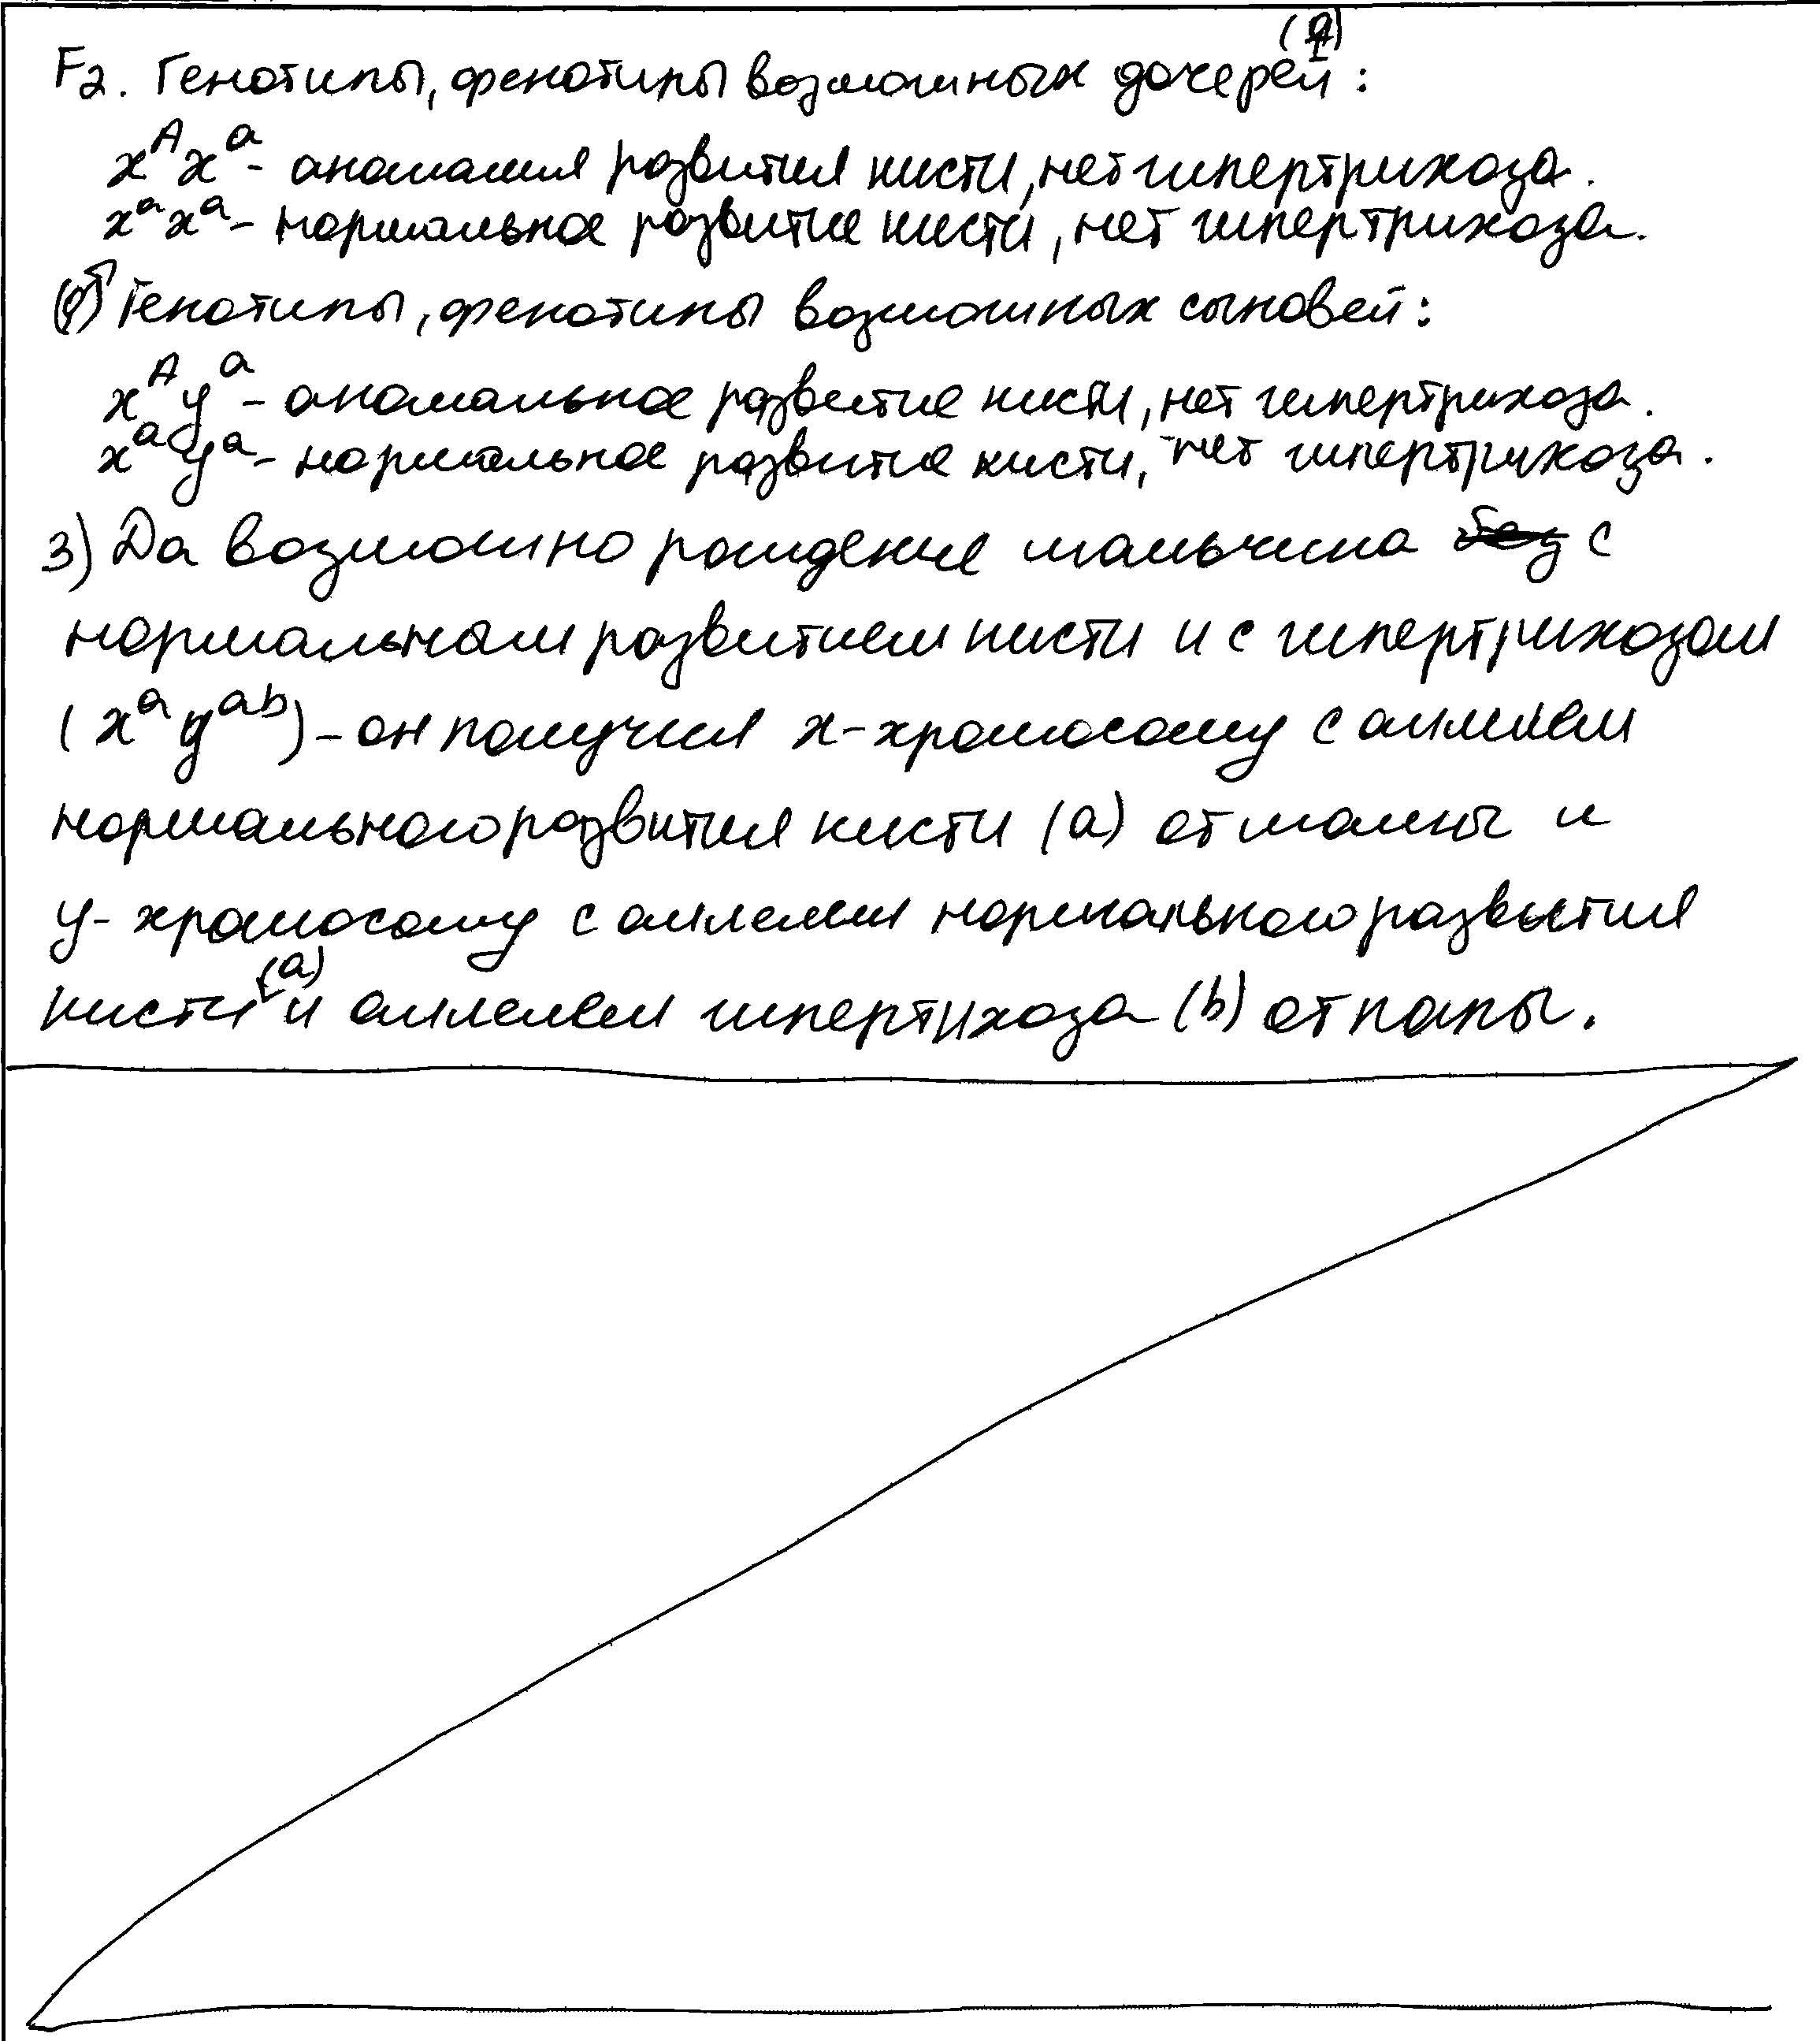 (♀)
F2. Генотипы, фенотипы возможных дочерей:
x^A x^a - аномалия развития кисти, нет гипертрихоза.
x^a x^a - нормальное развитие кисти, нет гипертрихоза.
(♂) Генотипы, фенотипы возможных сыновей:
x^A y^a - аномальное развитие кисти, нет гипертрихоза.
x^a y^a - нормальное развитие кисти, нет гипертрихоза.
3) Да возможно рождение мальчика без с
нормальным развитием кисти и с гипертрихозом
(x^a y^ab) - он получил x-хромосому с аллелем
нормального развития кисти (a) от мамы и
y-хромосому с аллелем нормального развития
(a)
кисти и аллелем гипертихоза (b) от папы.